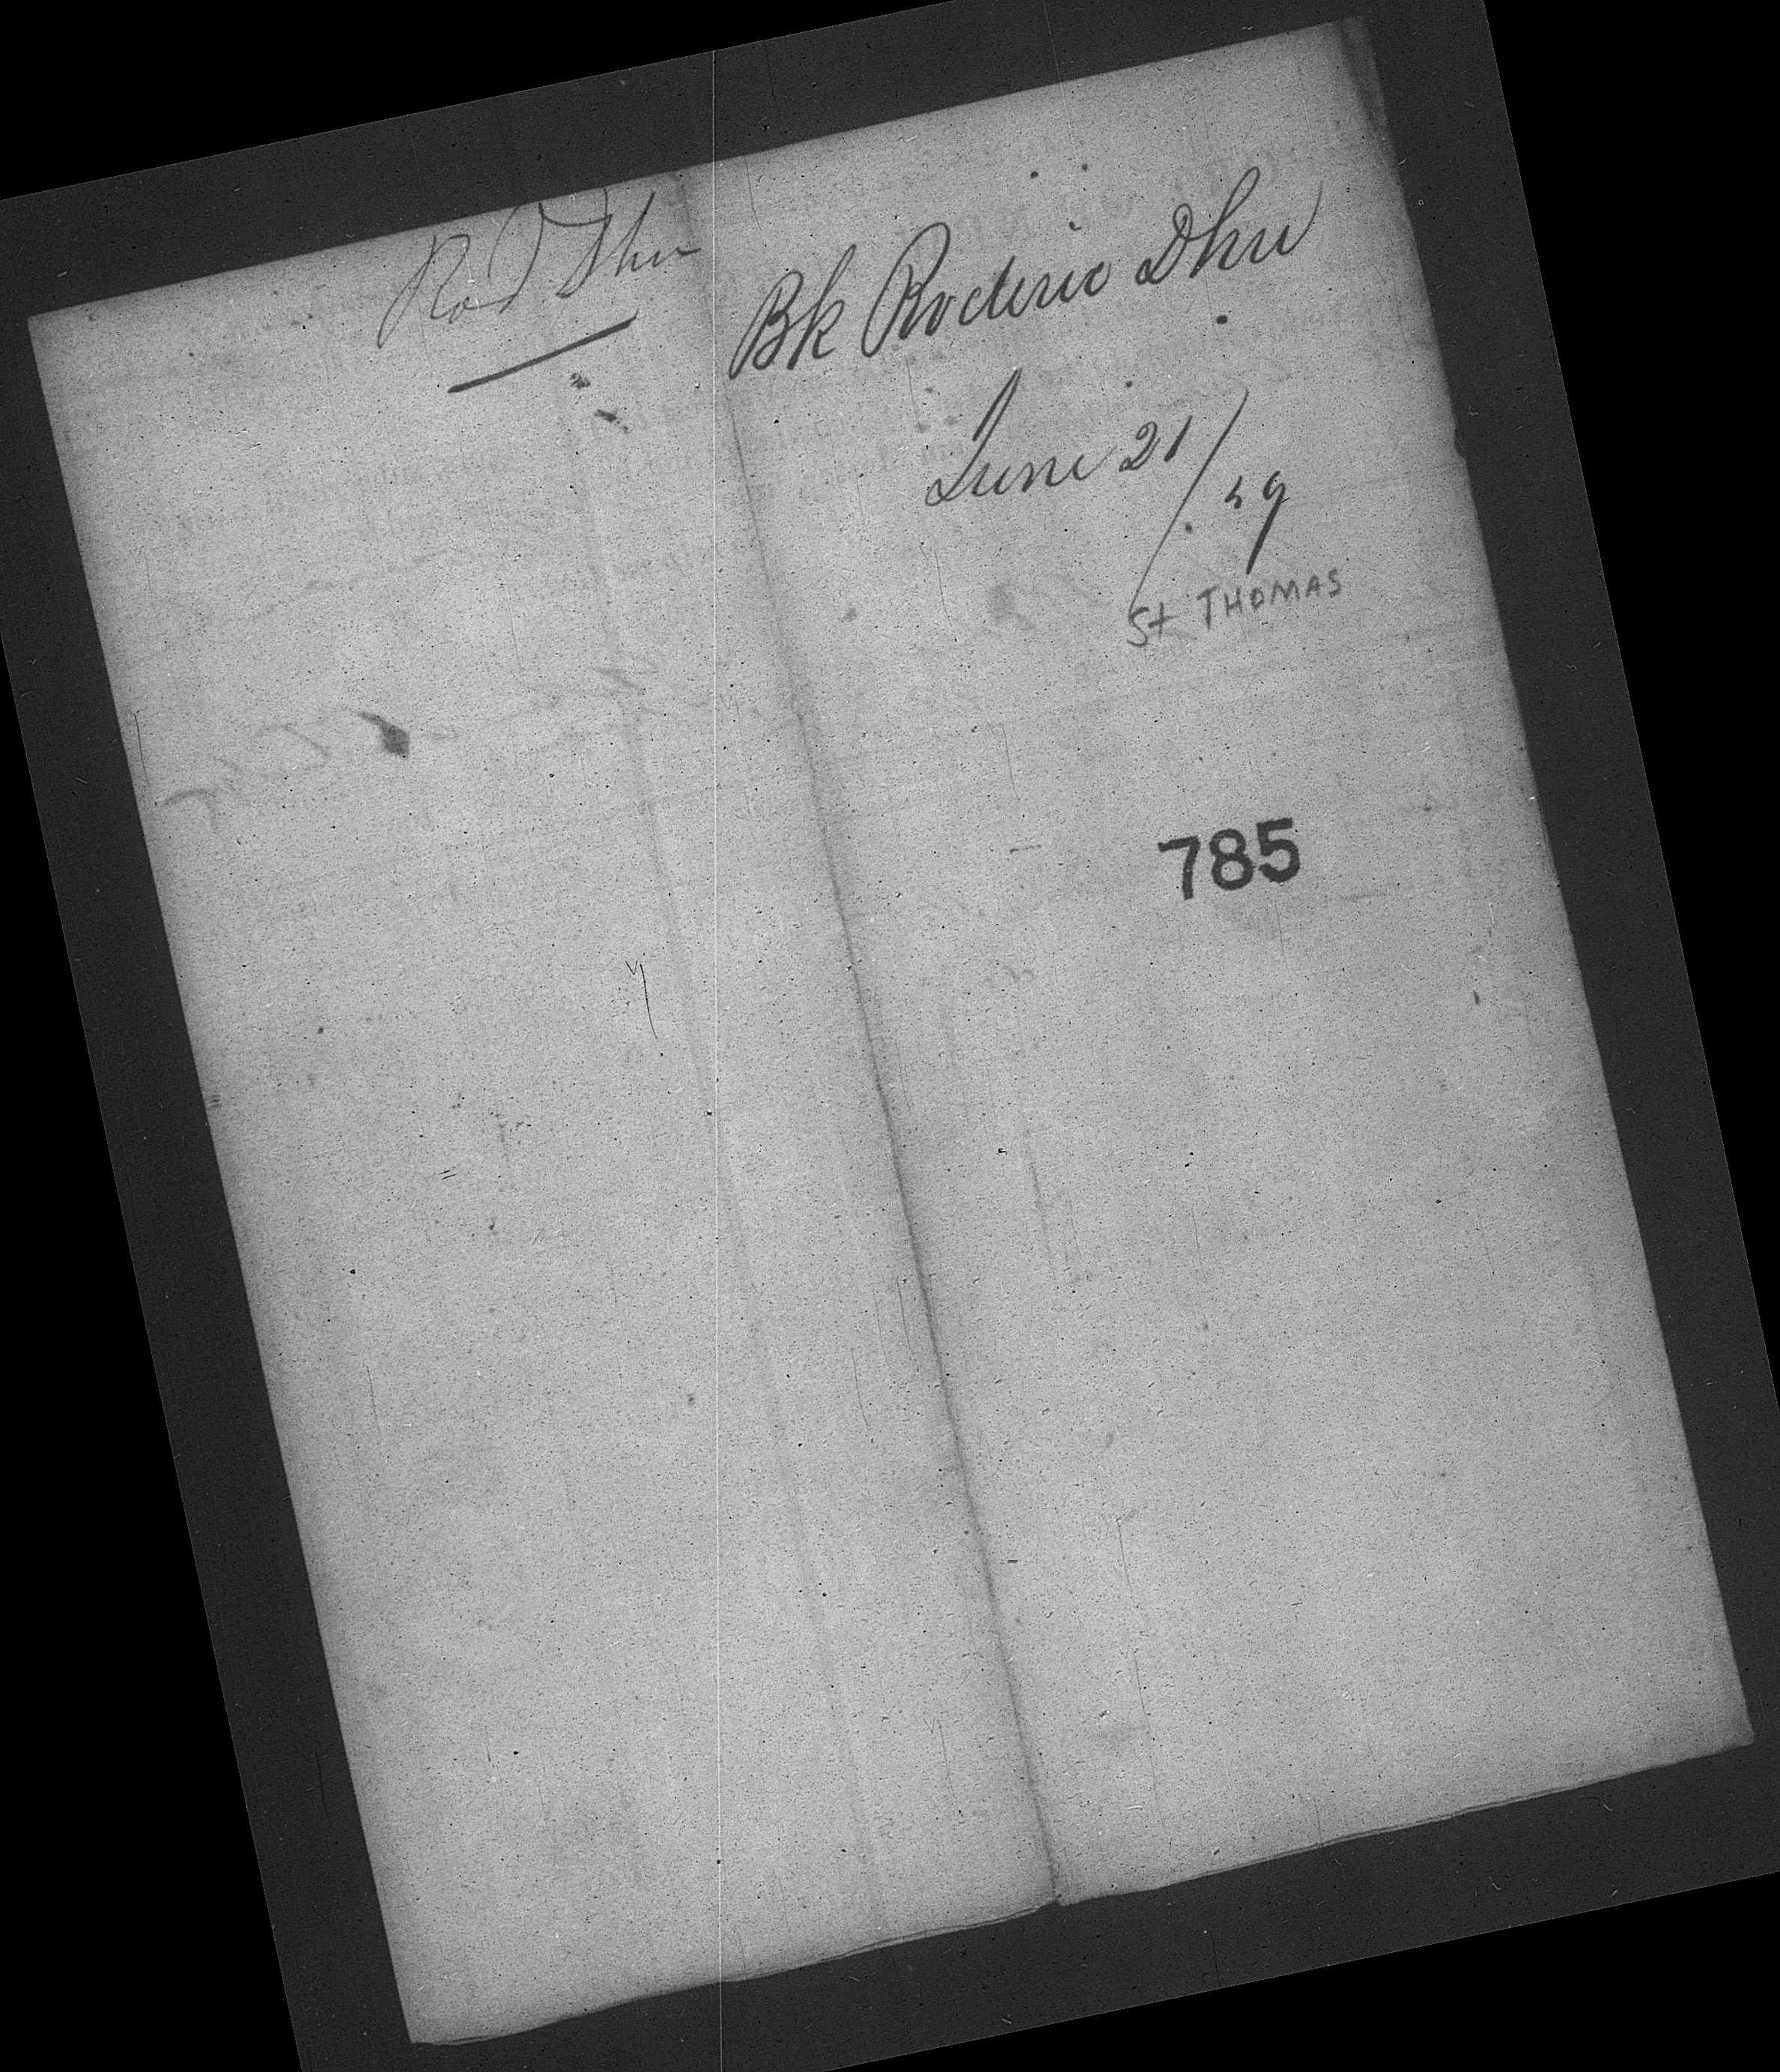 Rod Dhu
Bk Roderic Dhu
June 21/59
St THOMAS
785